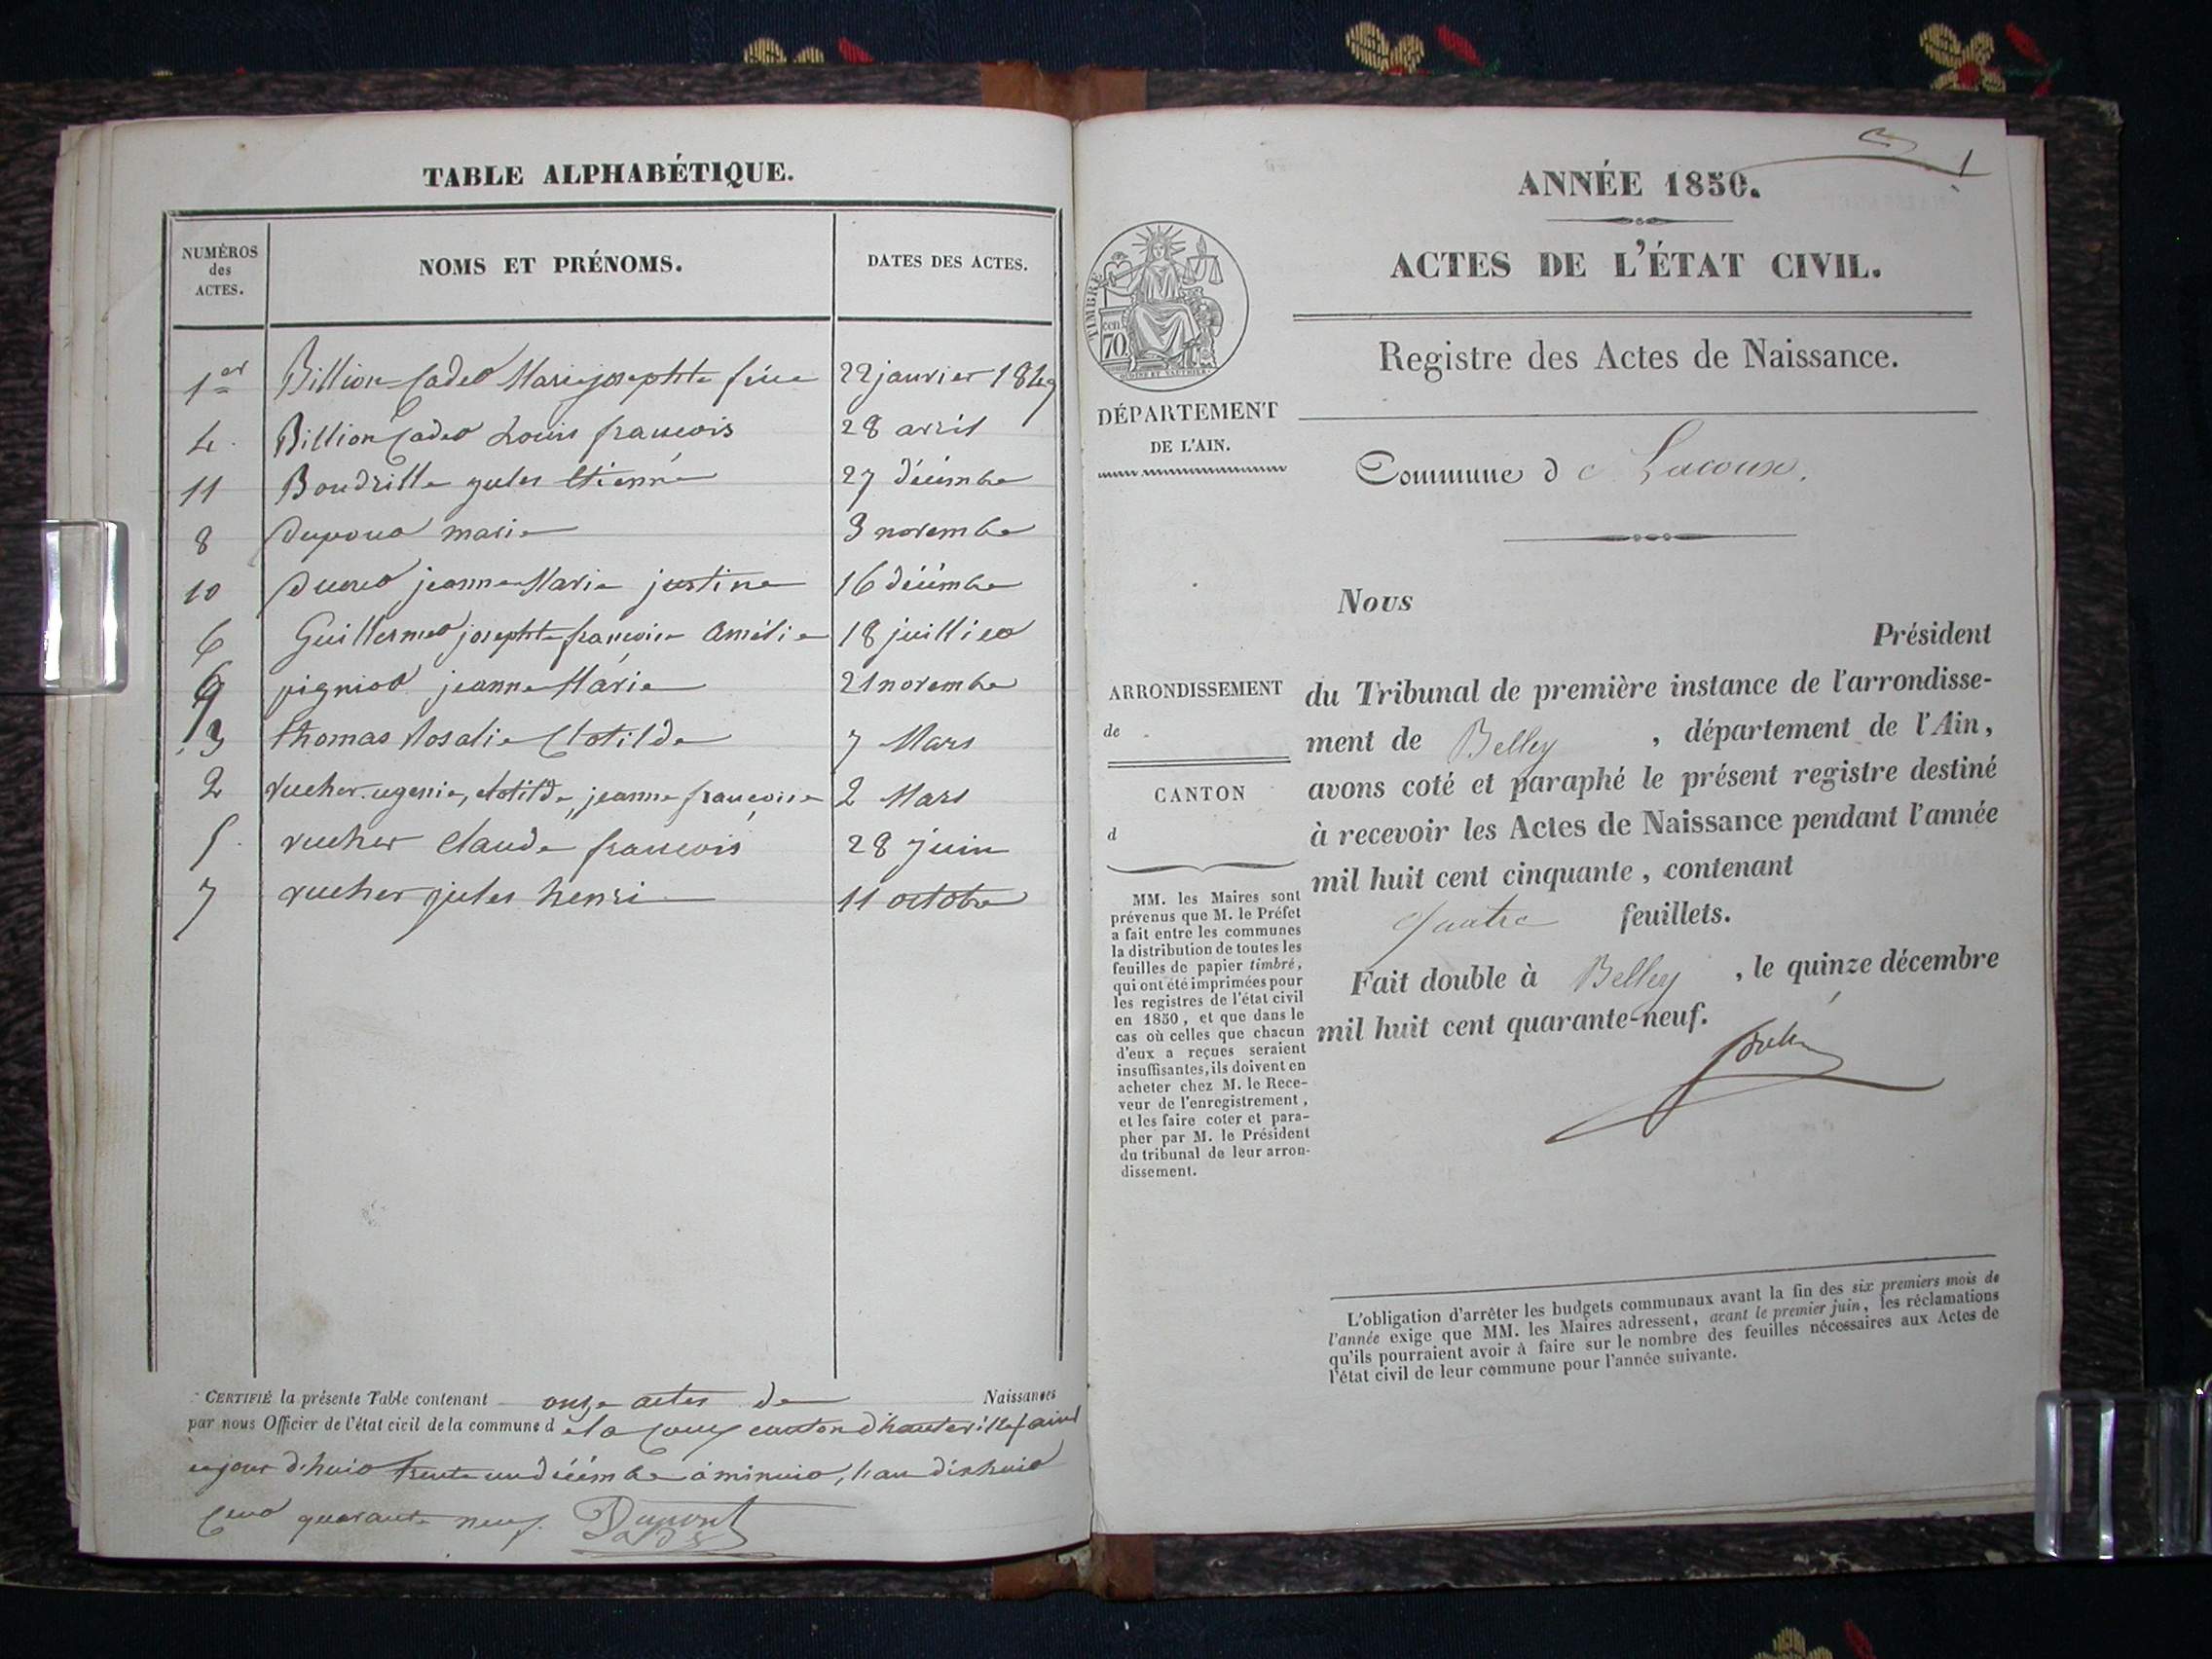 TABLE ALPHABÉTIQUE.
NUMÉROS des ACTES.
NOMS ET PRÉNOMS.
DATES DES ACTES.
1er Billion Cadet Marie josephte 22 janvier 1849
4. Billion Cadet Louis francois 28 avril
11 Boudrille jules étienne 27 décembre
8 Dupont marie 3 novembre
10 Ducret jeanne Marie justine 16 décembre
6 Guillermet josephte francoise Amélie 18 juillet
9 pigniod jeanne Marie 21 novembre
3 thomas Rosalie Clotilde 7 Mars
2 rucher ugenie, clotilde, jeanne francoise 2 Mars
5. rucher Claude francois 28 juin
7 rucher jules henri 11 octobre
CERTIFIÉ la présente Table contenant onze actes de Naissances
par nous Officier de l'état civil de la commune d e la Coux canton d'hauteville (ain)
ce jour d'huit trente un décembre à minuit, l'an dix huit
Cent quarante neuf. Dupont
1
ANNÉE 1850.
ACTES DE L'ÉTAT CIVIL.
Registre des Actes de Naissance.
TIMBRE
cen.
70
DÉPARTEMENT
DE L'AIN.
Commune d e Lacoux.
Nous
Président
ARRONDISSEMENT
de
CANTON
d
du Tribunal de première instance de l'arrondisse-
ment de Belley , département de l'Ain,
avons coté et paraphé le présent registre destiné
à recevoir les Actes de Naissance pendant l'année
mil huit cent cinquante, contenant
quatre feuillets.
Fait double à Belley , le quinze décembre
mil huit cent quarante-neuf.
MM. les Maires sont
prévenus que M. le Préfet
a fait entre les communes
la distribution de toutes les
feuilles de papier timbré,
qui ont été imprimées pour
les registres de l'état civil
en 1850, et que dans le
cas où celles que chacun
d'eux a reçues seraient
insuffisantes, ils doivent en
acheter chez M. le Rece-
veur de l'enregistrement,
et les faire coter et para-
pher par M. le Président
du tribunal de leur arron-
dissement.
L'obligation d'arrêter les budgets communaux avant la fin des six premiers mois de
l'année exige que MM. les Maires adressent, avant le premier juin, les réclamations
qu'ils pourraient avoir à faire sur le nombre des feuilles nécessaires aux Actes de
l'état civil de leur commune pour l'année suivante.